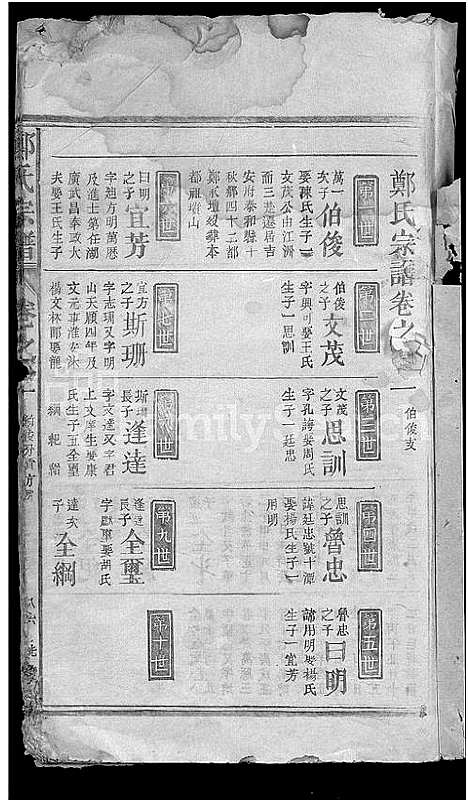 鄭氏宗譜卷之
伯俊支
第一世
萬一
次子
伯俊
娶陳氏生子二
文茂公由江濟
而三赴遷居吉
安府泰和縣十
秋鄉四十二都
都祖塔山
第二世
伯俊
之子
文茂
字興可娶王氏
生子一思訓
第三世
文茂
之子
思訓
字孔諤娶周氏
生子一廷忠
第四世
思訓
之子
魯忠
諱廷忠號十潭
娶楊氏生子一
用明
第五世
魯忠
之子
曰明
諱用明娶楊氏
生子一宜芳
第六世
曰明
之子
宜芳
字迪方明萬曆
及進士第任湖
廣武昌奉政大
夫娶王氏生子
第七世
宜方
之子
斯珊
字志珊又字明
山天順四年及
文元事淮
楊文林郎娶龍
第八世
斯珊
長子
逢達
字文達又字君
上文庠生娶康
氏生子五全璽
綱 紀
第九世
逢達
長子
全璽
字 娶胡氏
達次
子
全綱
第十世
鄭氏宗譜
卷之